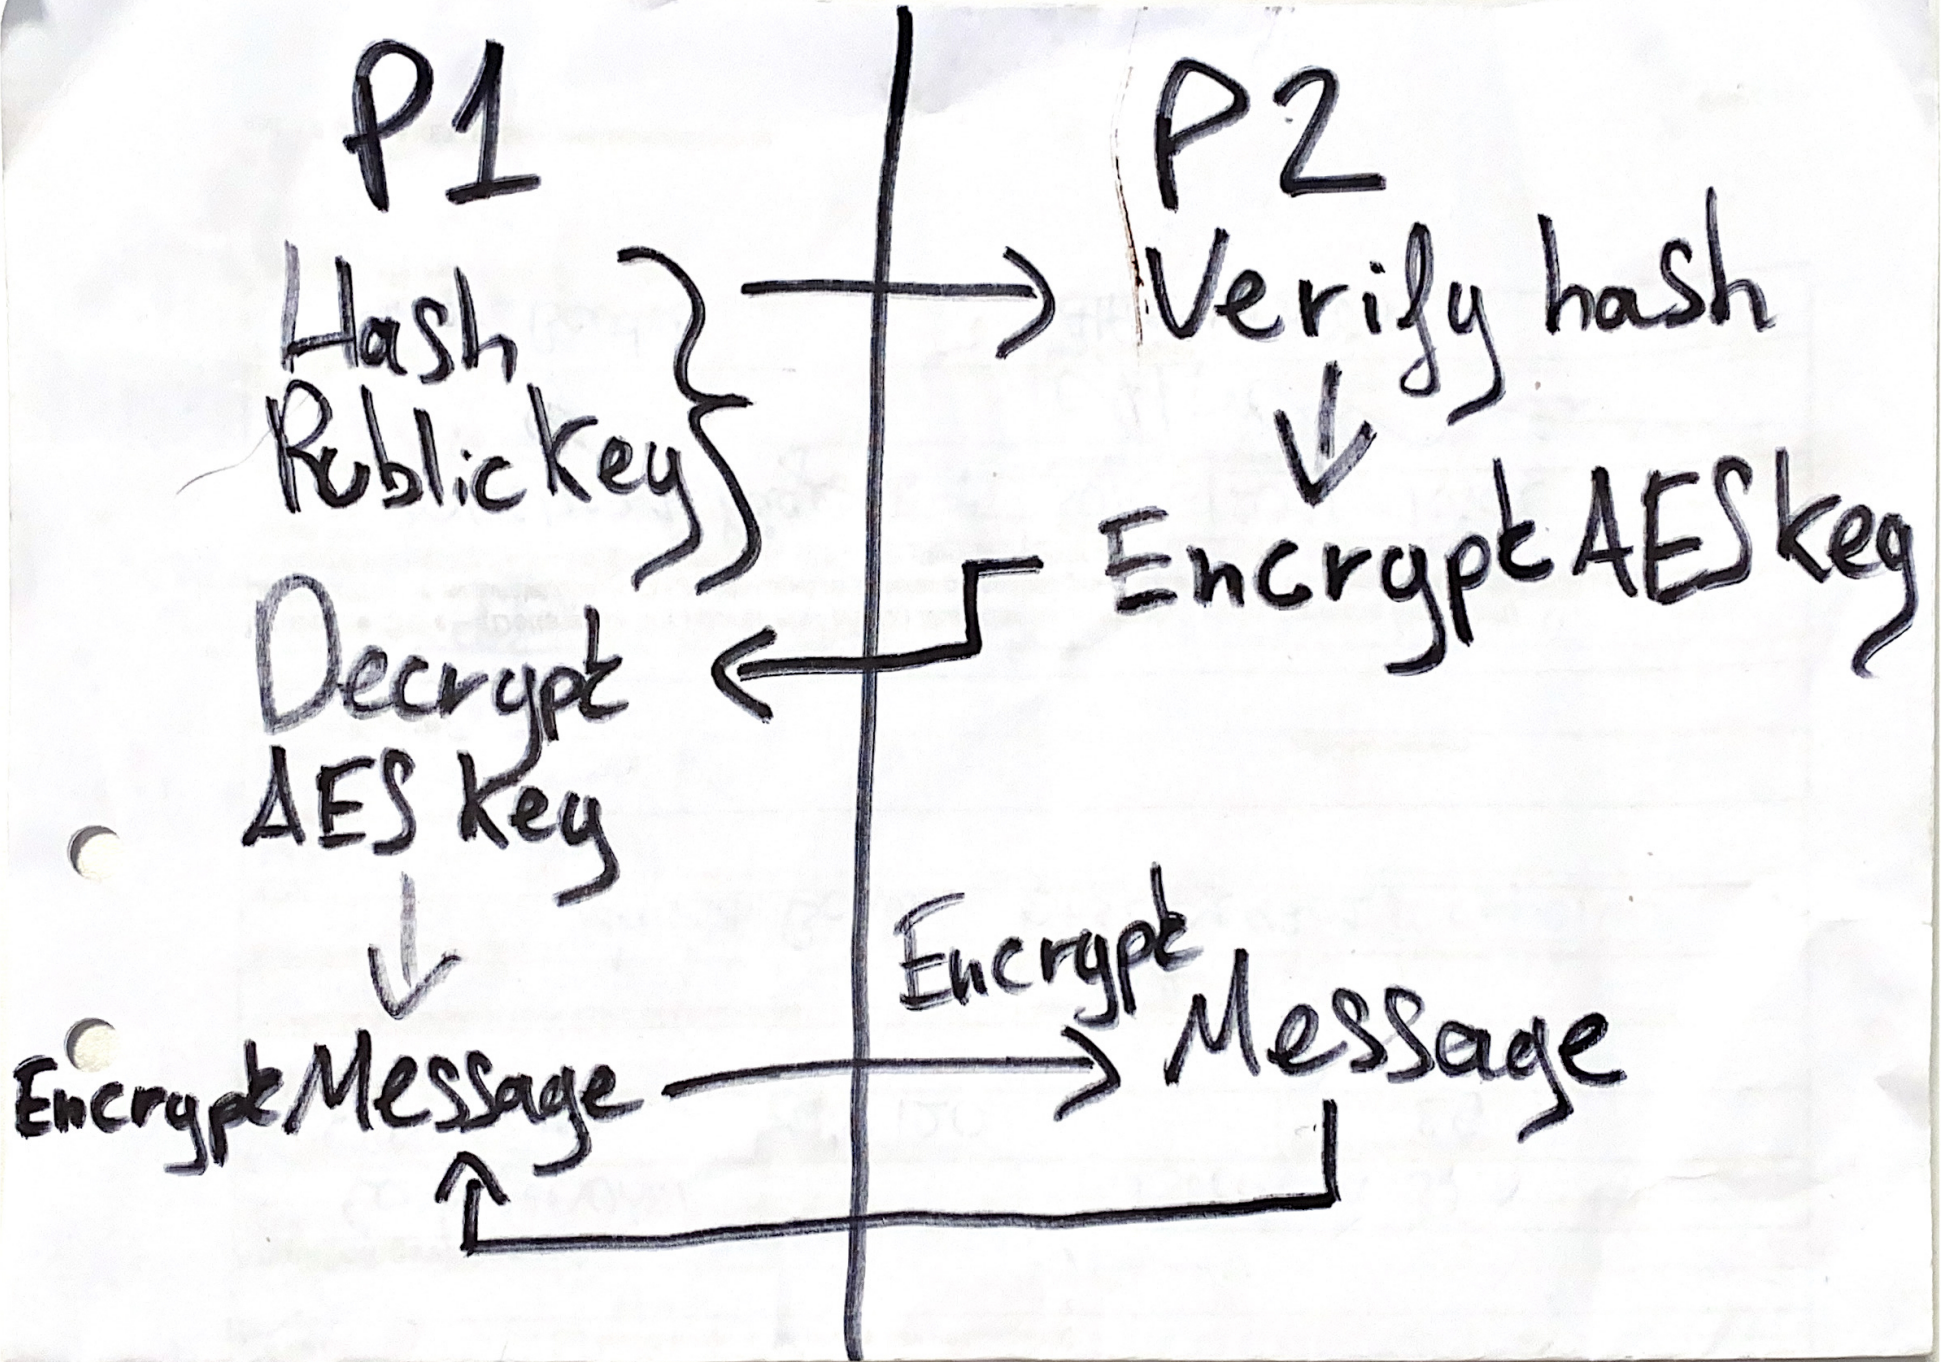 P1
Hash
Public Key
Decrypt
AES key
Encrypt Message
P2
Verify hash
Encrypt AES key
Encrypt
Message